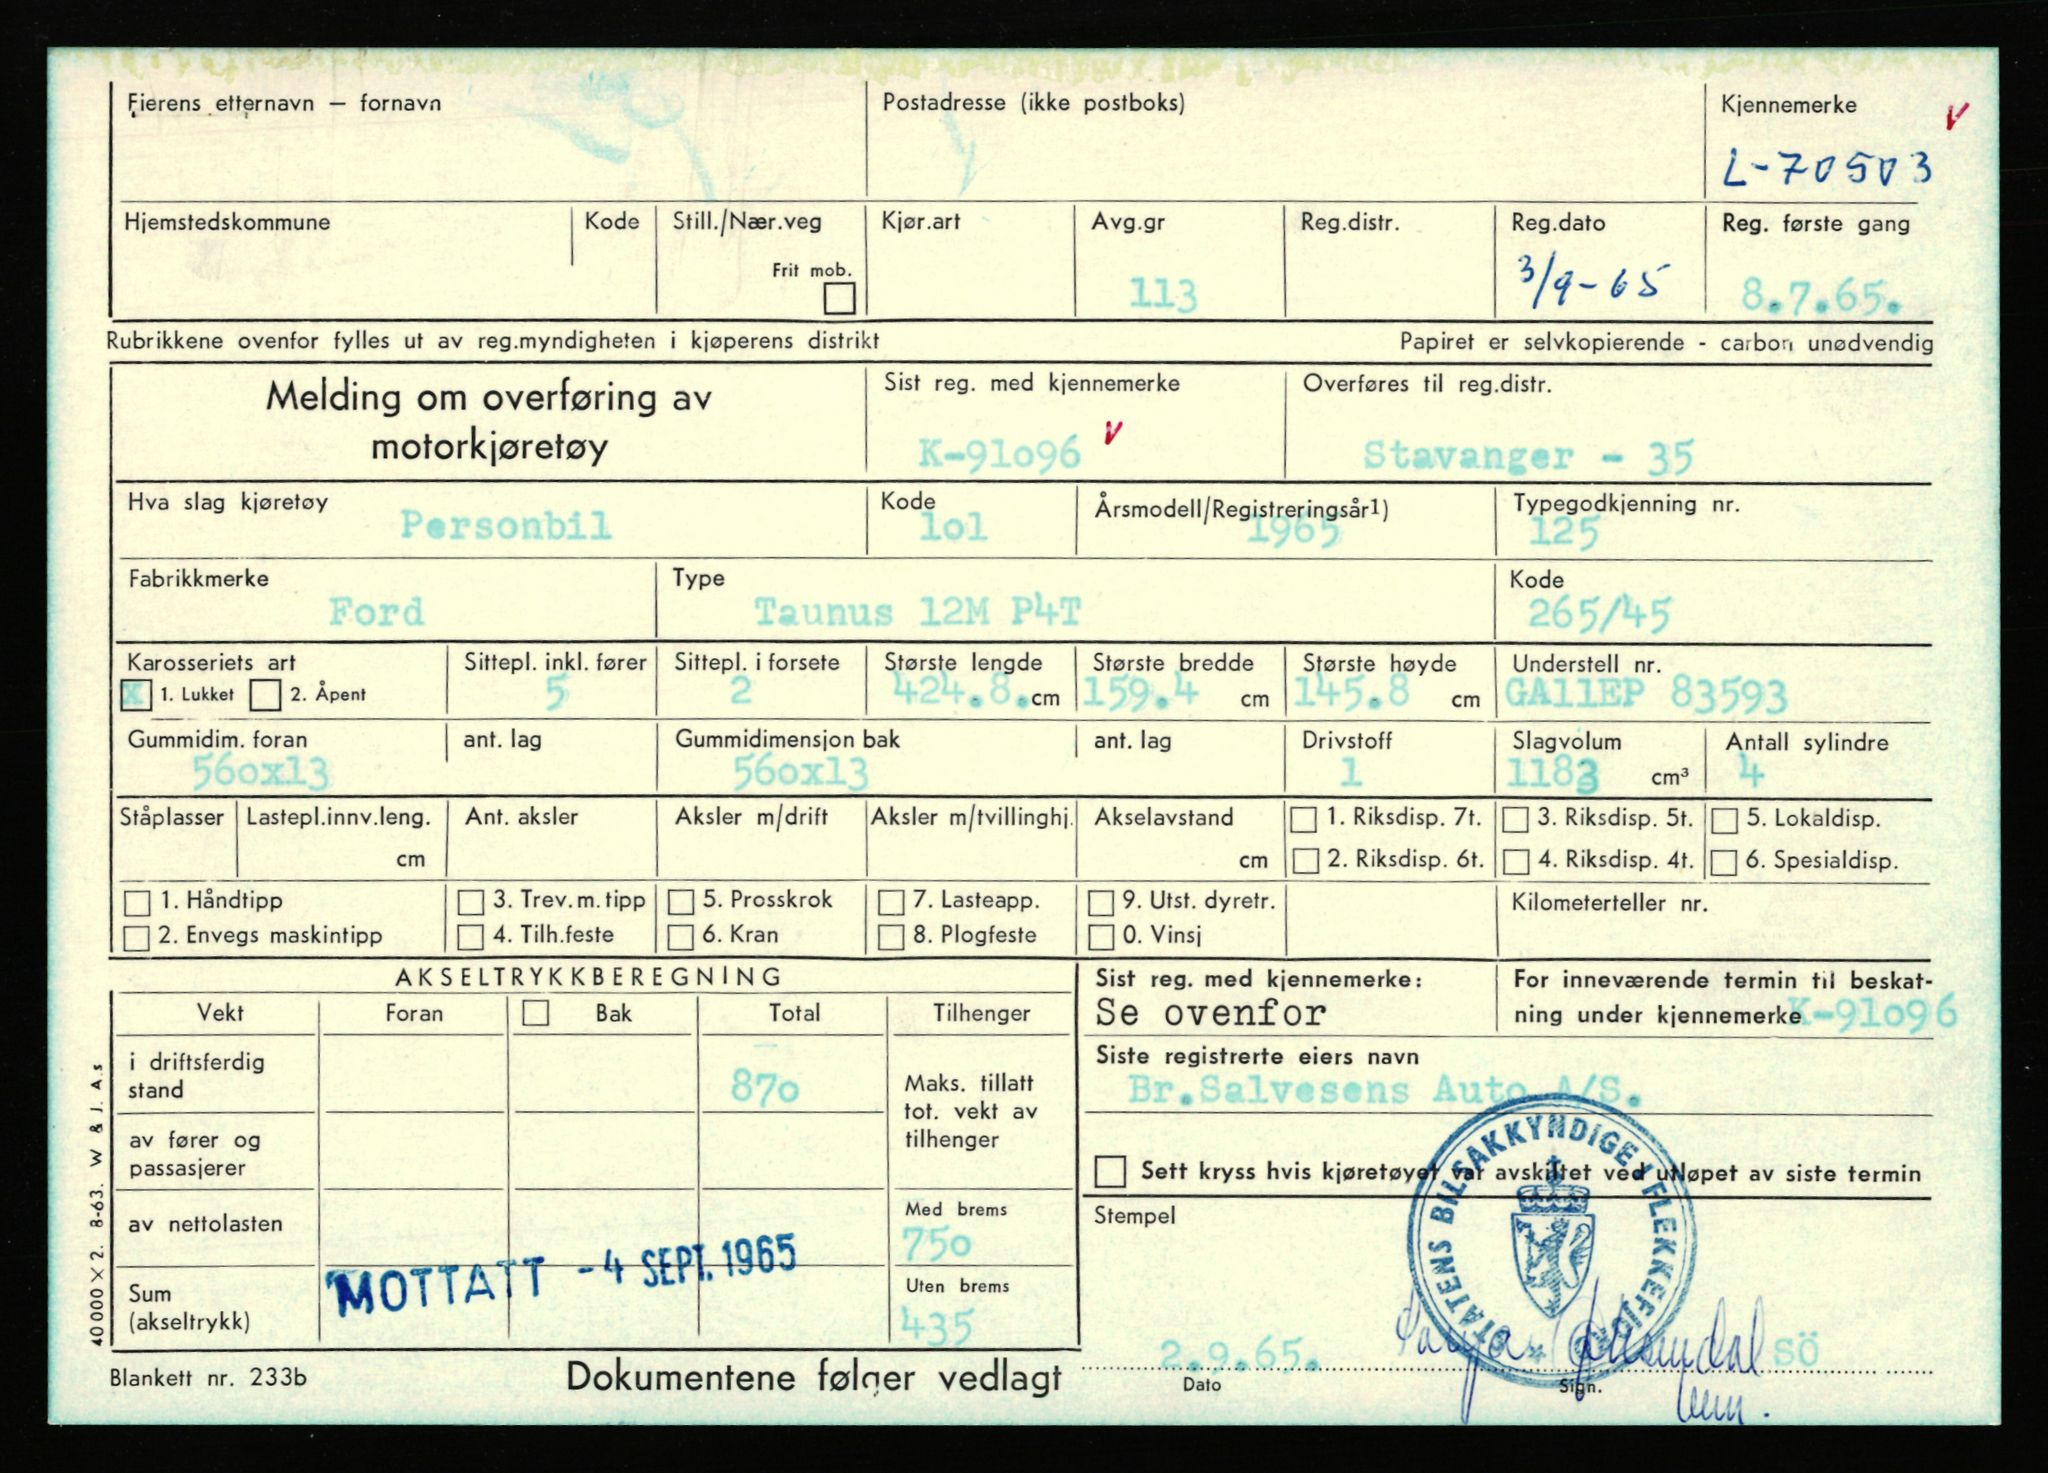 Eierens etternavn — fornavn Postadresse (ikke postboks) Kjennemerke V
L-70503
Hjemstedskommune Kode Still./Nær.veg Kjør.art Avg.gr Reg.distr. Reg.dato Reg. første gang
Frit mob. 113 3/9-65 8.7.65.
Rubrikkene ovenfor fylles ut av reg.myndigheten i kjøperens distrikt Papiret er selvkopierende - carbon unødvendig
Melding om overføring av Sist reg. med kjennemerke Overføres til reg.distr.
motorkjøretøy K-91o96 V Stavanger - 35
Hva slag kjøretøy Kode Årsmodell/Registreringsår1) Typegodkjenning nr.
Personbil lol 1965 125
Fabrikkmerke Type Kode
Ford Taunus 12M P4T 265/45
Karosseriets art Sittepl. inkl. fører Sittepl. i forsete Største lengde Største bredde Største høyde Understell nr.
x 1. Lukket 2. Åpent 5 2 424.8. cm 159.4 cm 145.8 cm GA11EP 83593
Gummidim. foran ant. lag Gummidimensjon bak ant. lag Drivstoff Slagvolum Antall sylindre
56ox13 56ox13 1 1183 cm³ 4
Ståplasser Lastepl.innv.leng. Ant. aksler Aksler m/drift Aksler m/tvillinghj. Akselavstand 1. Riksdisp. 7t. 3. Riksdisp. 5t. 5. Lokaldisp.
cm cm 2. Riksdisp. 6t. 4. Riksdisp. 4t. 6. Spesialdisp.
1. Håndtipp 3. Trev.m.tipp 5. Prosskrok 7. Lasteapp. 9. Utst. dyretr. Kilometerteller nr.
2. Envegs maskintipp 4. Tilh.feste 6. Kran 8. Plogfeste 0. Vinsj
AKSELTRYKKBEREGNING Sist reg. med kjennemerke: For inneværende termin til beskat-
Vekt Foran Bak Total Tilhenger Se ovenfor ning under kjennemerke K-91o96
i driftsferdig Siste registrerte eiers navn
stand 87o Maks. tillatt Br.Salvesens Auto A/S.
tot. vekt av
av fører og tilhenger
passasjerer Sett kryss hvis kjøretøyet var avskiltet ved utløpet av siste termin
av nettolasten Med brems Stempel
75o
MOTTATT - 4 SEPT. 1965
Sum Uten brems
(akseltrykk) 435
STATENS BILSAKKYNDIGE I FLEKKEFJORD
2.9.65. SÖ
Blankett nr. 233b Dokumentene følger vedlagt Dato Sign.
40 000 × 2. 8-63. W & J. A.s